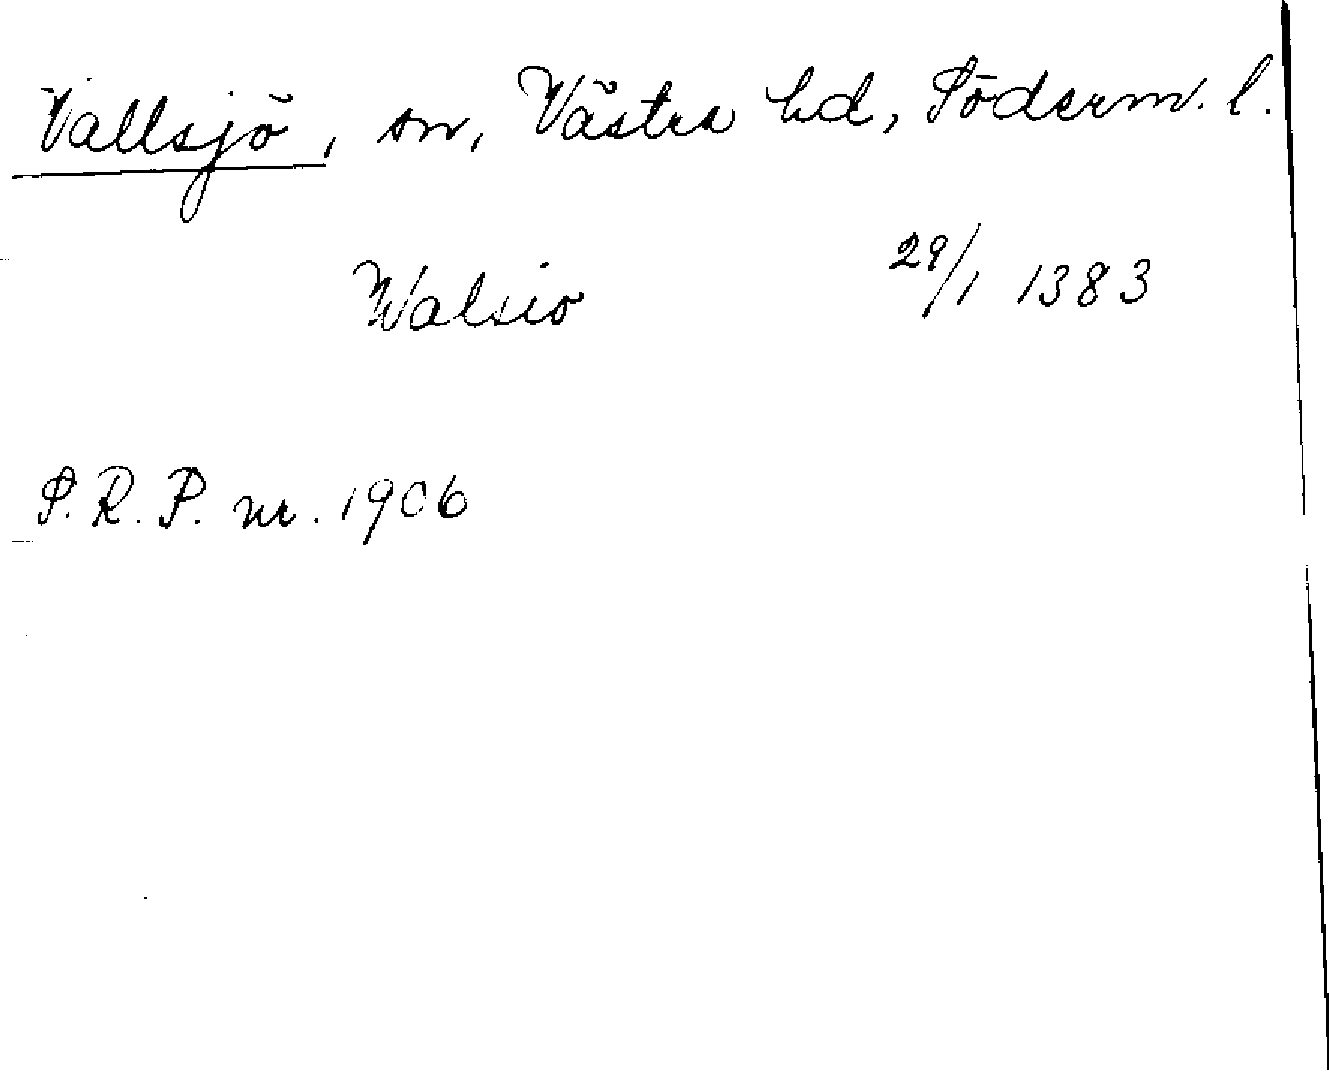 Vallsjö, sn, Västra hd, Söderm. l.
Walsio 29/1 1383
S.R.P. nr. 1906